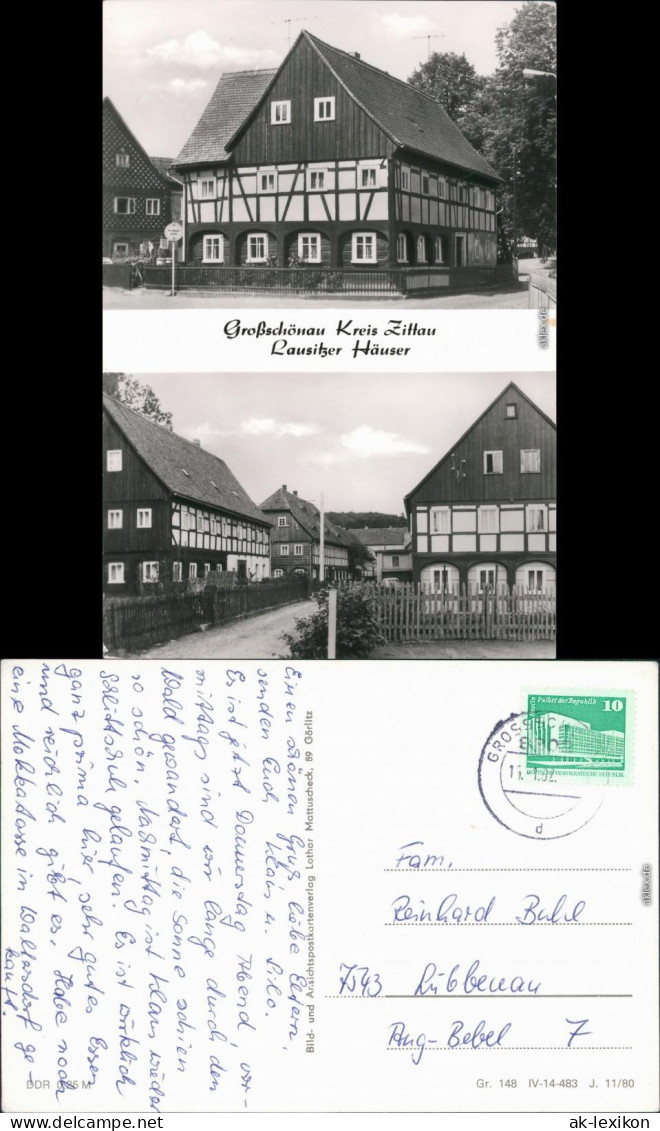 Großschönau Kreis Zittau
Lausitzer Häuser
aklex.de
Einen schönen Gruß, liebe Eltern,
senden Euch Klaus u. Silo.
Es ist jetzt Donnerstag Abend, vor-
mittags sind wir lange durch den
Wald gewandert, die Sonne schien
so schön. Nachmittag ist Klaus wieder
Schlittschuh gelaufen. Es ist wirklich
ganz prima hier, sehr gutes Essen
und reichlich gibt es. Habe noch
eine Mokkatasse in Waltersdorf ge-
kauft.
Bild- und Ansichtspostkartenverlag Lothar Mattuscheck, 89 Görlitz
Palast der Republik
10
DEUTSCHE DEMOKRATISCHE REPUBLIK
GROSSSC
d
Fam.
Reinhard Buhl
7543 Lübbenau
Aug-Bebel 7
aklex.de
DDR 0,25 M
Gr. 148 IV-14-483 J. 11/80
www.delcampe.net
ak-lexikon